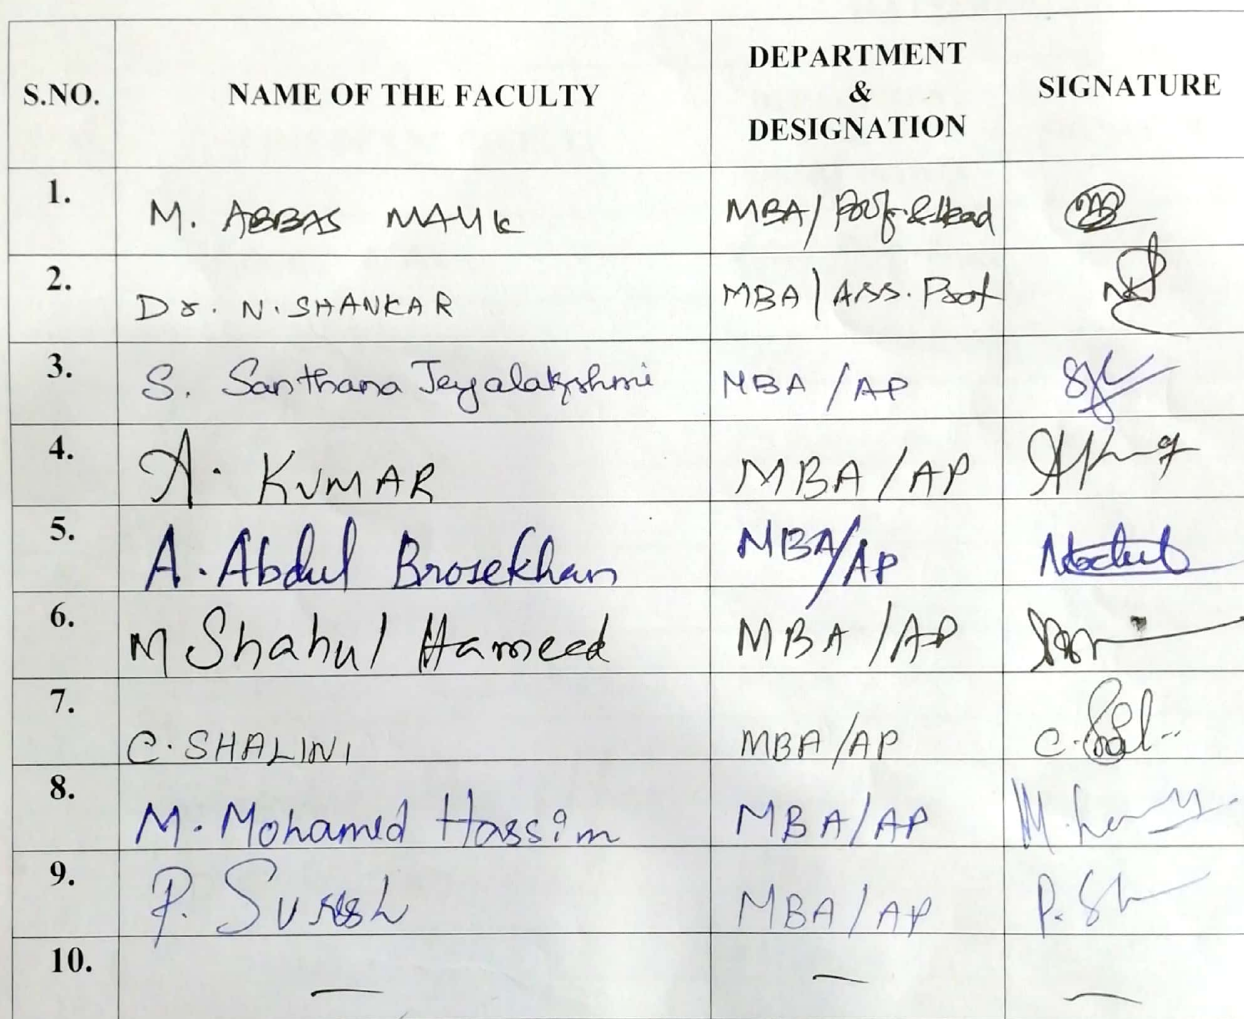 S.NO. NAME OF THE FACULTY DEPARTMENT & DESIGNATION SIGNATURE
1. M. ABBAS MALIK MBA/Prof. & Head
2. Dr. N. SHANKAR MBA/Ass. Prof
3. S. Santhana Jeyalakshmi MBA/AP
4. A. KUMAR MBA/AP
5. A. Abdul Brosekhan MBA/AP
6. M Shahul Hameed MBA/AP
7. C. SHALINI MBA/AP
8. M. Mohamed Hassim MBA/AP
9. P. Suresh MBA/AP
10. — — —